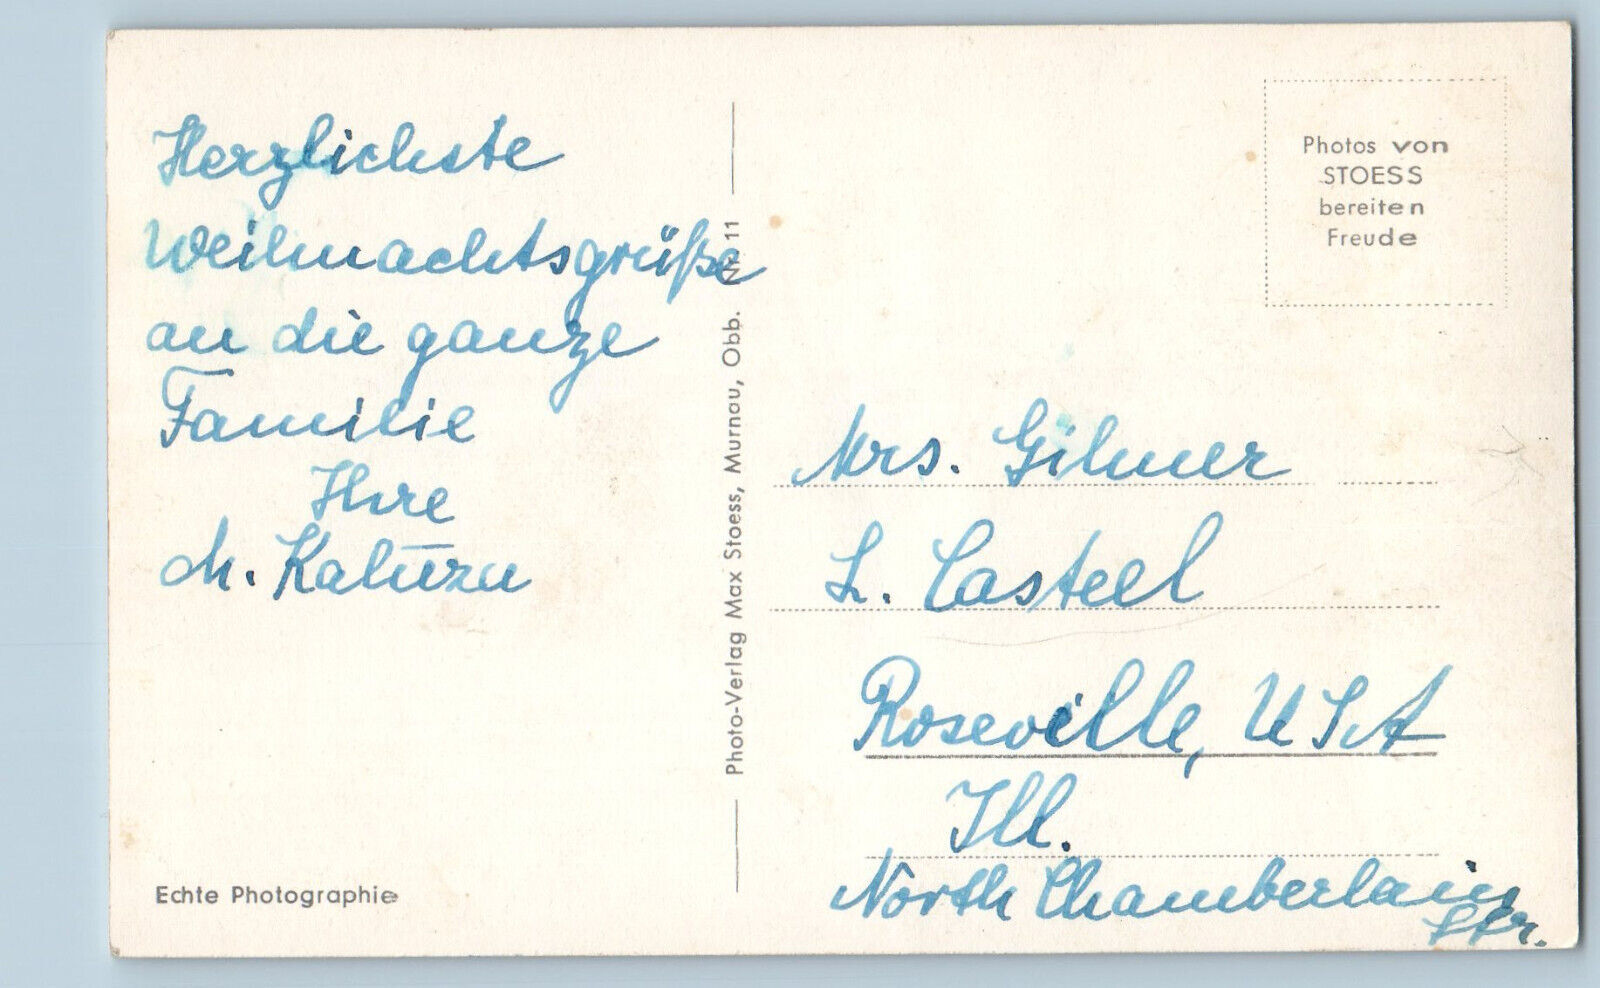 Herzlichste
Weihnachtsgrüße
an die ganze
Familie
Ihre
M.
Echte Photographie
Photo-Verlag Max Stoess, Murnau, Obb. Nr. 11
Photos von
STOESS
bereiten
Freude
Mrs. Gilmer
L. Casteel
Roseville, USA
Ill.
North Chamberlain
Str.